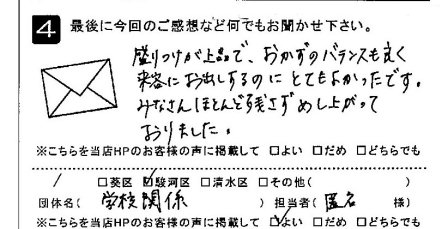 4 最後に今回のご感想など何でもお聞かせ下さい。
盛りつけが上品で、おかずのバランスも良く
来客にお出しするのにとてもよかったです。
みなさんほとんど残さずめし上がって
おりました。
※こちらを当店HPのお客様の声に掲載して □よい □だめ □どちらでも
/ □葵区 ☑駿河区 □清水区 □その他(
団体名( 学校関係 ) 担当者( 匿名 様)
※こちらを当店HPのお客様の声に掲載して ☑よい □だめ □どちらでも